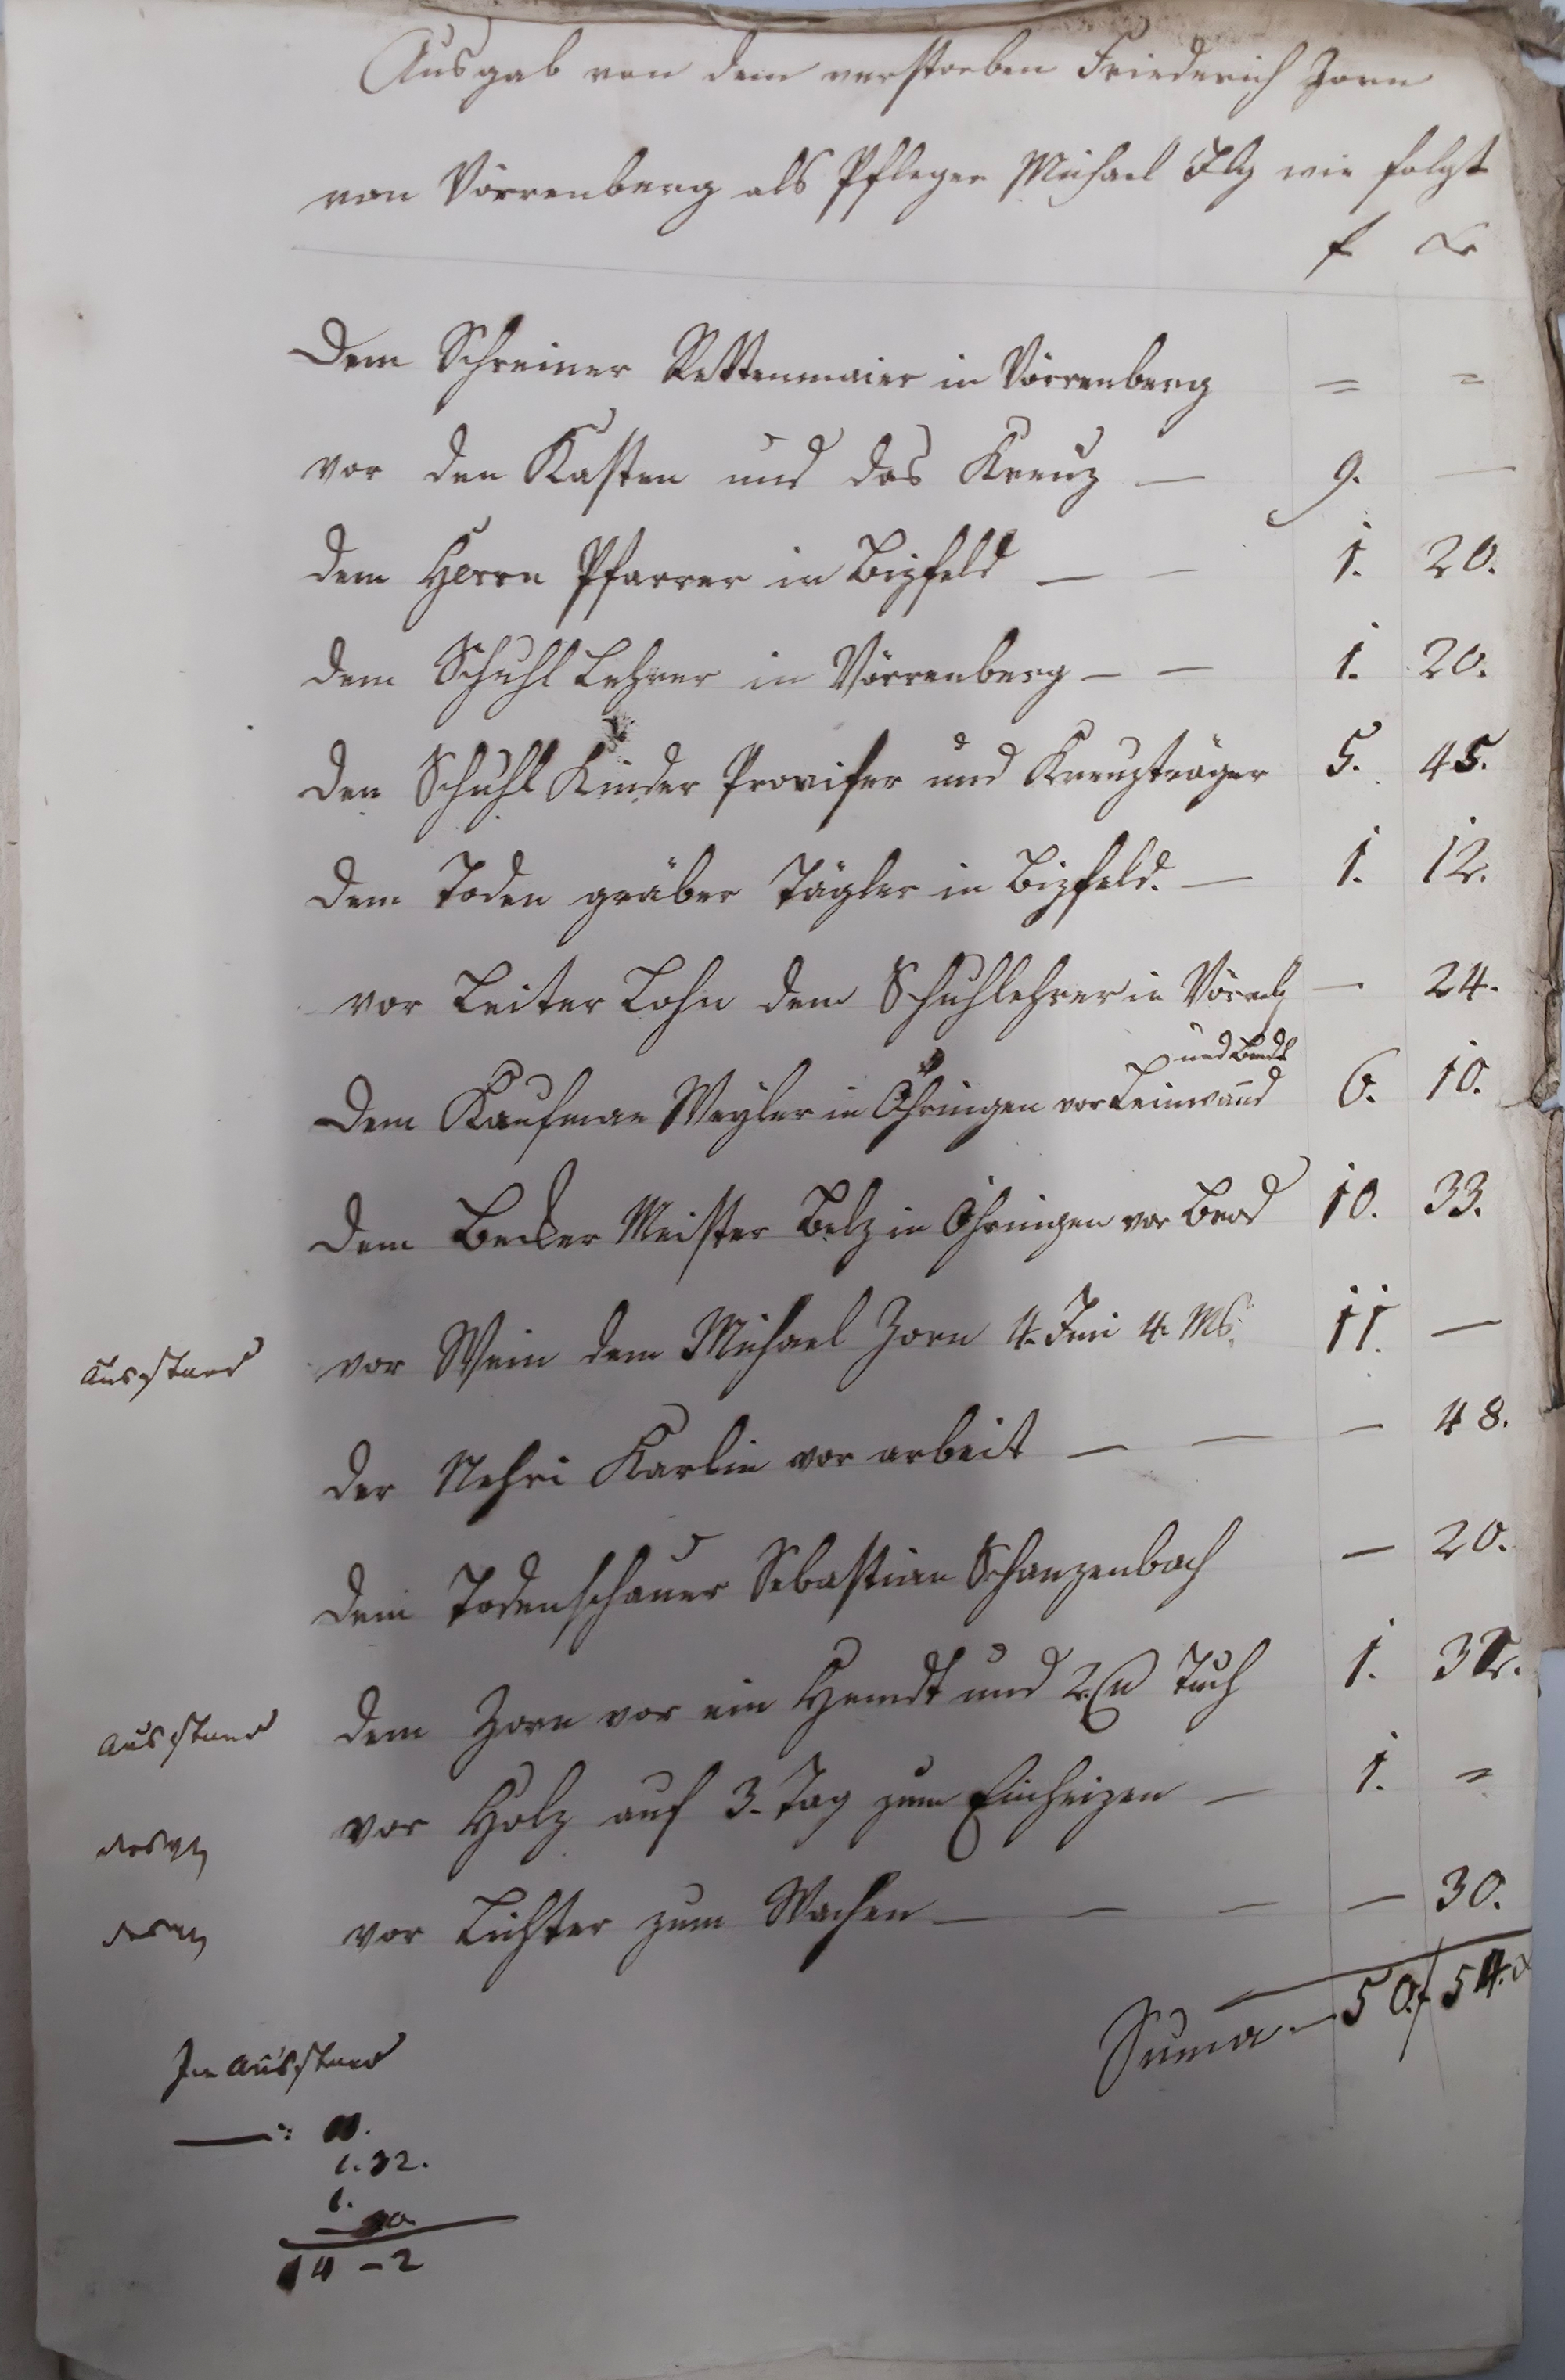 Ausgab von dem verstorben Friederich Zorn
von Vörrenberg als Pfleger Michael Ilg wie folgt
f xr
Dem Schreiner Rettenmaier in Vörrenberg = =
vor den Kasten und das Kreuz — 9. —
dem Herrn Pfarrer in Bizfeld — — 1. 20.
dem Schuhl Lehrer in Vörrenberg — — 1. 20.
den Schuhl Kinder Proviser und Kreuzträger 5. 45.
dem Toden gräber Tägler in Bizfeld. — 1. 12.
vor Leiter Lohn dem Schuhllehrer in — 24.
und Bendel
Dem Kaufman Weyler in Öhringen vor Leinwand 6. 10.
dem Becker Meister Belz in Öhringen vor Brod 10. 33.
Ausstand vor Wein dem Michael Zorn 4. Imi 4. Ms. 11. —
der Nehri Karlin vor arbeit — — — 48.
dem Todenschauer Sebastian Schanzenbach — 20.
Ausstand dem Zorn vor ein Hemdt und 2. Tuch 1. 32.
vor Holz auf 3. Tag zum Einheizen — 1. =
vor Lichter zum Wachen — — — — 30.
Suma — 50 f 54. x
In Ausstand
—: 11.
1. 32.
1.
— 30
14 — 2